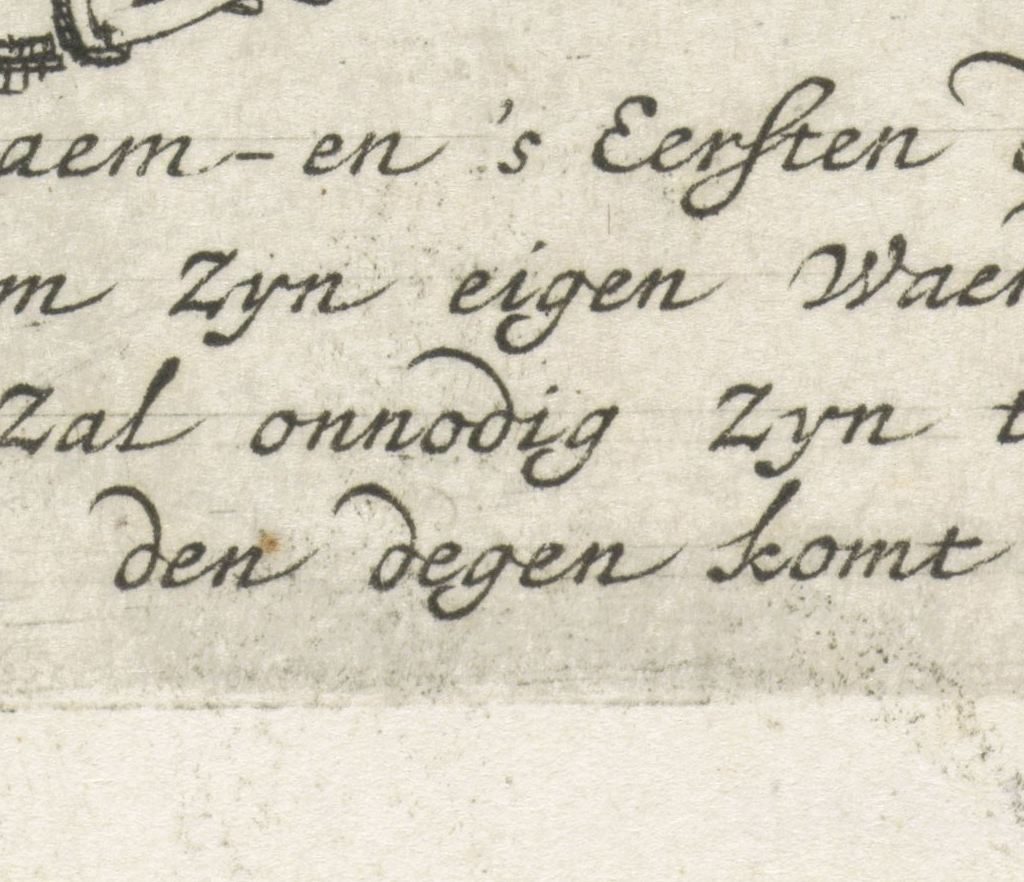 aem - en 's Eersten
m Zyn eigen Waer
Zal onnodig Zyn t
den degen komt